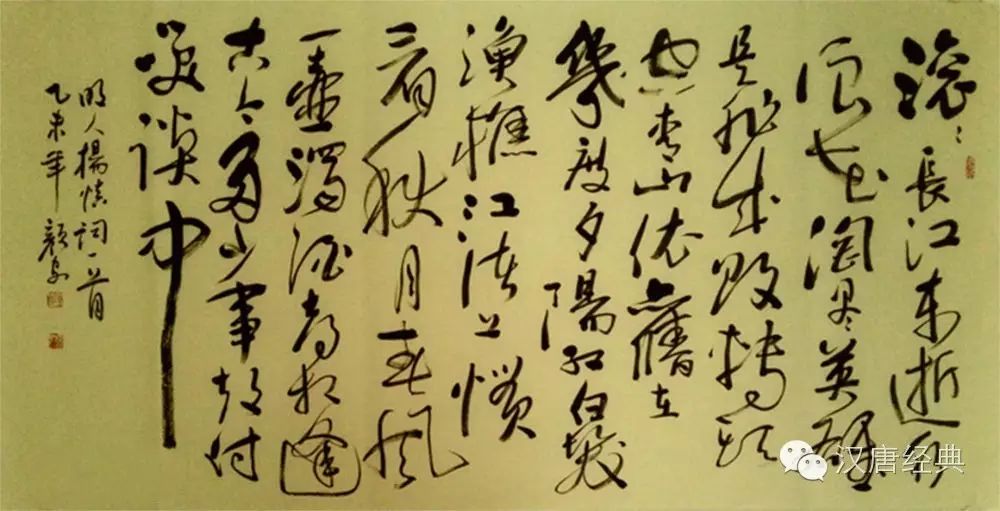 滚〻長江东逝水
浪花淘尽英雄
是非成败转头
空青山依舊在
幾度夕陽红白髮
渔樵江渚上惯
看秋月春风
一壶濁酒喜相逢
古今多少事都付
笑谈中
明人楊慎词一首
乙未年
汉唐经典